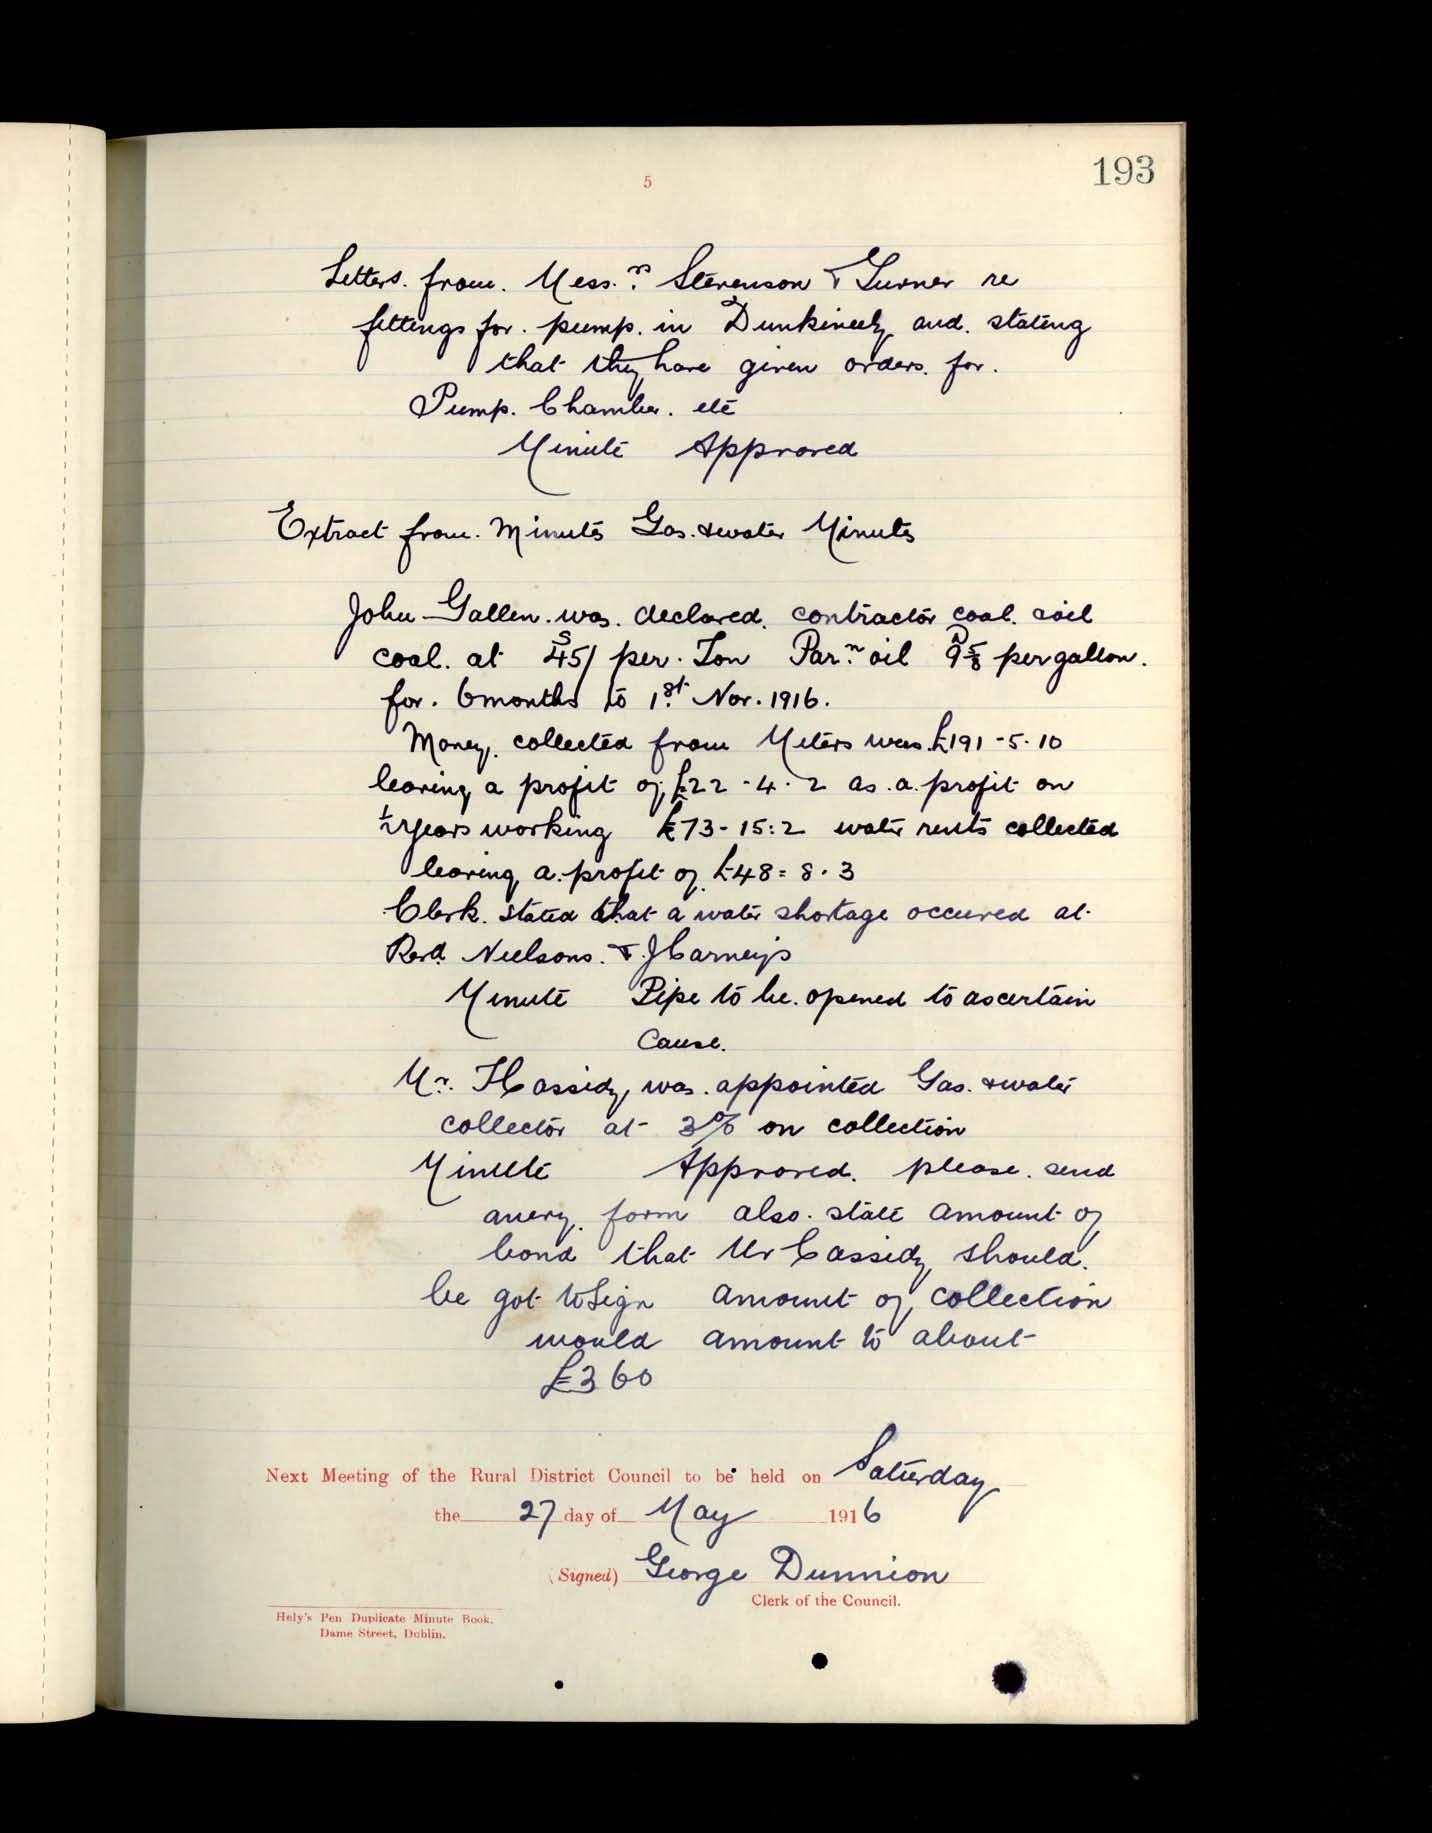 193
5
Letters. from. Mess.rs Stevenson & Turner re
fittings for. pump. in Dunkineely and. stating
that they have given orders. for.
Pump. Chamber. etc
Minute Approved
Extract from. Minutes Gas. & water Minutes
John Gallen. was. declared. contractor coal. & oil
coal. at 45/S per. Ton Par.n oil 9 5/8 D per gallon.
for. 6 months to 1st. Nov. 1916.
Money. collected from Meters was. £191-5.10
leaving a profit of £22-4.2 as. a. profit on
1/2 years working £73-15:2 water rents collected
leaving a. profit of £48=8.3
Clerk. stated that a water shortage occured at
Revd. Neelsons. & J Carney's
Minute Pipe to be. opened to ascertain
Cause.
Mr. H Cassidy was. appointed Gas. & water
collector at 3% on collection
Minute Approved. please. send
form also. state amount of
bond that Mr Cassidy should.
be got to Sign amount of collection
would amount to about
£360
Next Meeting of the Rural District Council to be held on Saturday
the 27 day of May 1916
(Signed) George Dunnion
Clerk of the Council.
Hely's Pen Duplicate Minute Book.
Dame Street, Dublin.